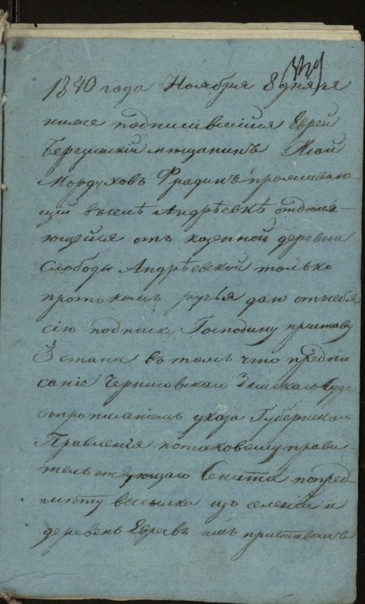 1840 года Ноября 8 дня я
ниже подписавшийся Еврей
Березинский мещанинъ
Мордуховъ Фрадинъ проживаю-
щій въ селѣ Андрѣевкѣ отделя-
ющейся отъ козенной деревни
Слободы Андрѣевской только
протокомъ ручья даю отъ себя
сію подписку Господину приставу
3 стана въ томъ что предпи
саніе Черниговскаго Земскаго Суда
съ прописаніемъ указа Губернскаго
Правленія по таковому Прави-
тельствующаго Сената по пред-
мѣту высылки изъ селеній и
деревень Евреевъ имъ приставомъ